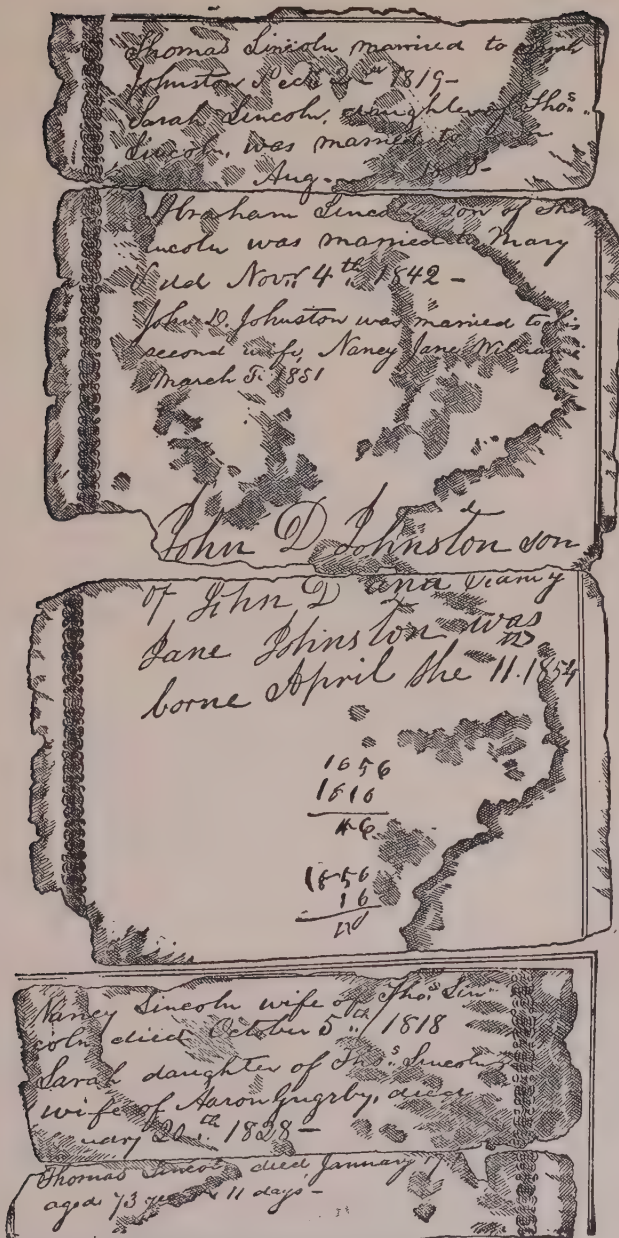 Thomas Lincoln married to
Johnston Dec 2nd 1819-
Sarah Lincoln, daughter of Thos.
Lincoln, was married to
Aug-
Abraham Lincoln son of Tho
Lincoln was married to Mary
Novr. 4th 1842 -
John D. Johnston was married to his
second wife, Nancy Jane Williams
March 5. 1851
John D Johnston son
of John D and
Jane Johnston was
borne April the 11. 1854
1856
1810
46
1856
16
Nancy Lincoln wife of Thos. Lin-
coln died October 5th 1818
Sarah daughter of Thos. Lincoln,
wife of Aaron Grigsby, died
uary 20th. 1828 -
Thomas Lincoln died January 17
aged 73 years 11 days -